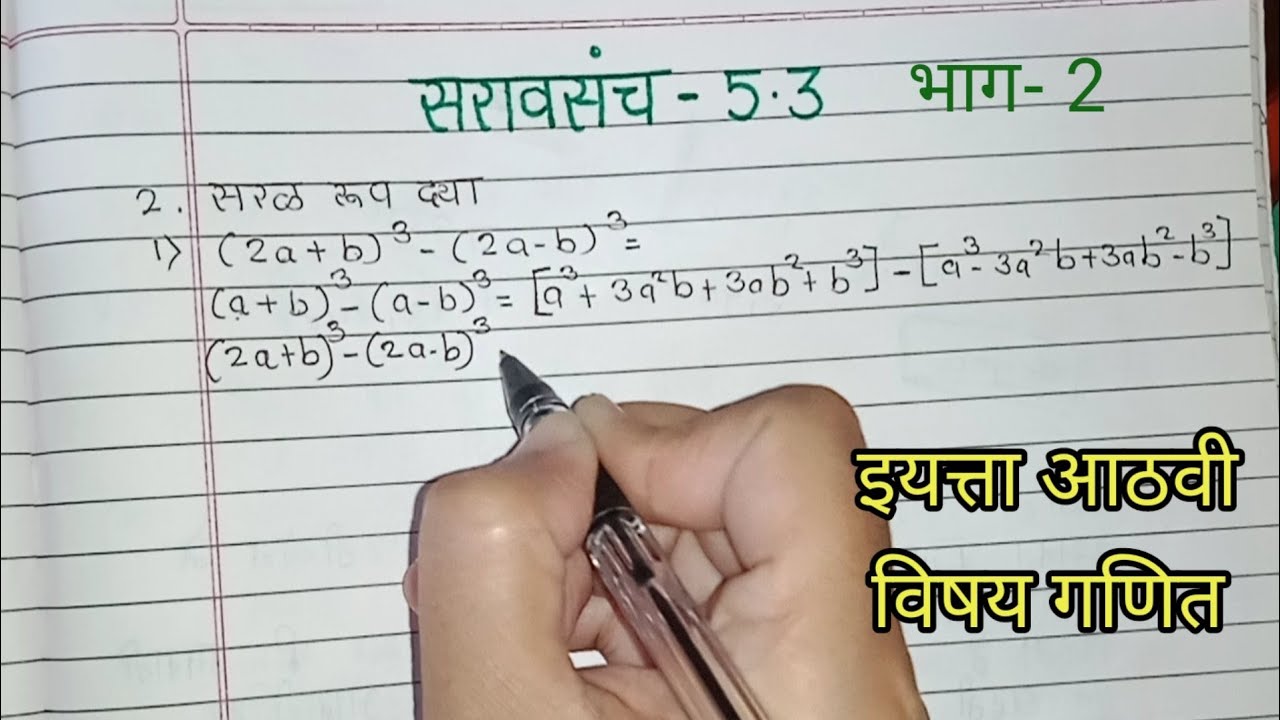 सरावसंच - 5.3 भाग- 2
2. सरळ रूप द्या
1) (2a+b)³-(2a-b)³=
(a+b)³-(a-b)³=[a³+3a²b+3ab²+b³]-[a³-3a²b+3ab²-b³]
(2a+b)³-(2a-b)³
इयत्ता आठवी
विषय गणित